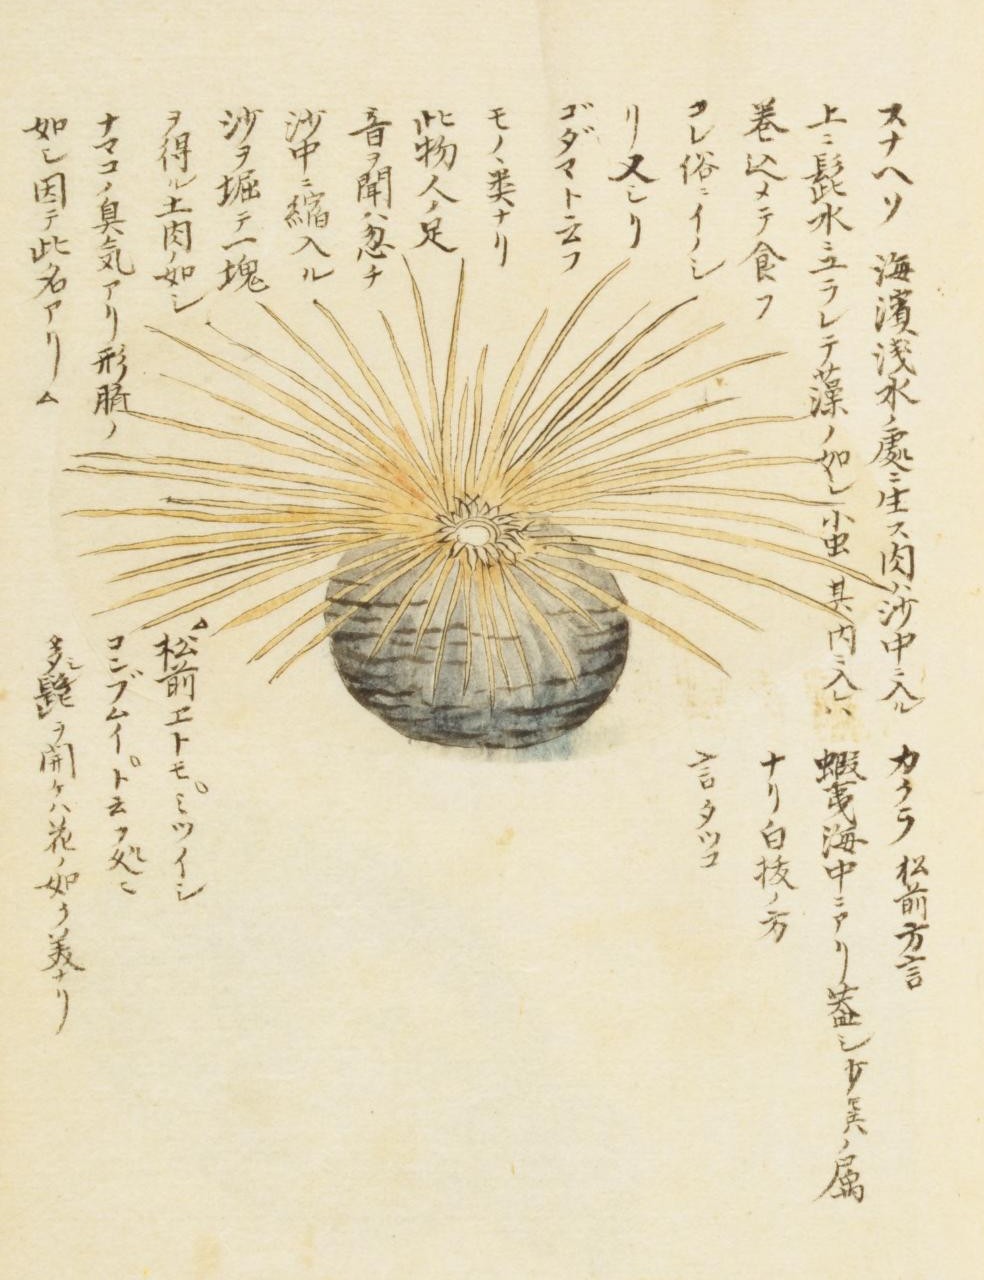 スナヘソ 海濱浅水ノ處ニ生ス肉ハ沙中ニ入ル
上ニ髭水ニユラレテ藻ノ如シ小虫其内ニ入レハ
巻込メテ食フ
コレ俗ニイノシ
リ又シリ
ゴダマト云フ
モノヽ類ナリ
此物人ノ足
音ヲ聞ハ忽チ
沙中ニ縮入ル
沙ヲ堀テ一塊
ヲ得ル土肉ノ如シ
ナマコノ臭気アリ形臍ノ
如シ因テ此名アリ△
カクラ 松前方言
蝦夷海中ニアリ蓋シ沙巽ノ属
ナリ白抜ノ方
言タツコ
△松前ヱトモ゜ミツイシ
コンブムイ゜ト云フ処ニ
多シ髭ヲ開ケハ花ノ如ク美ナリ